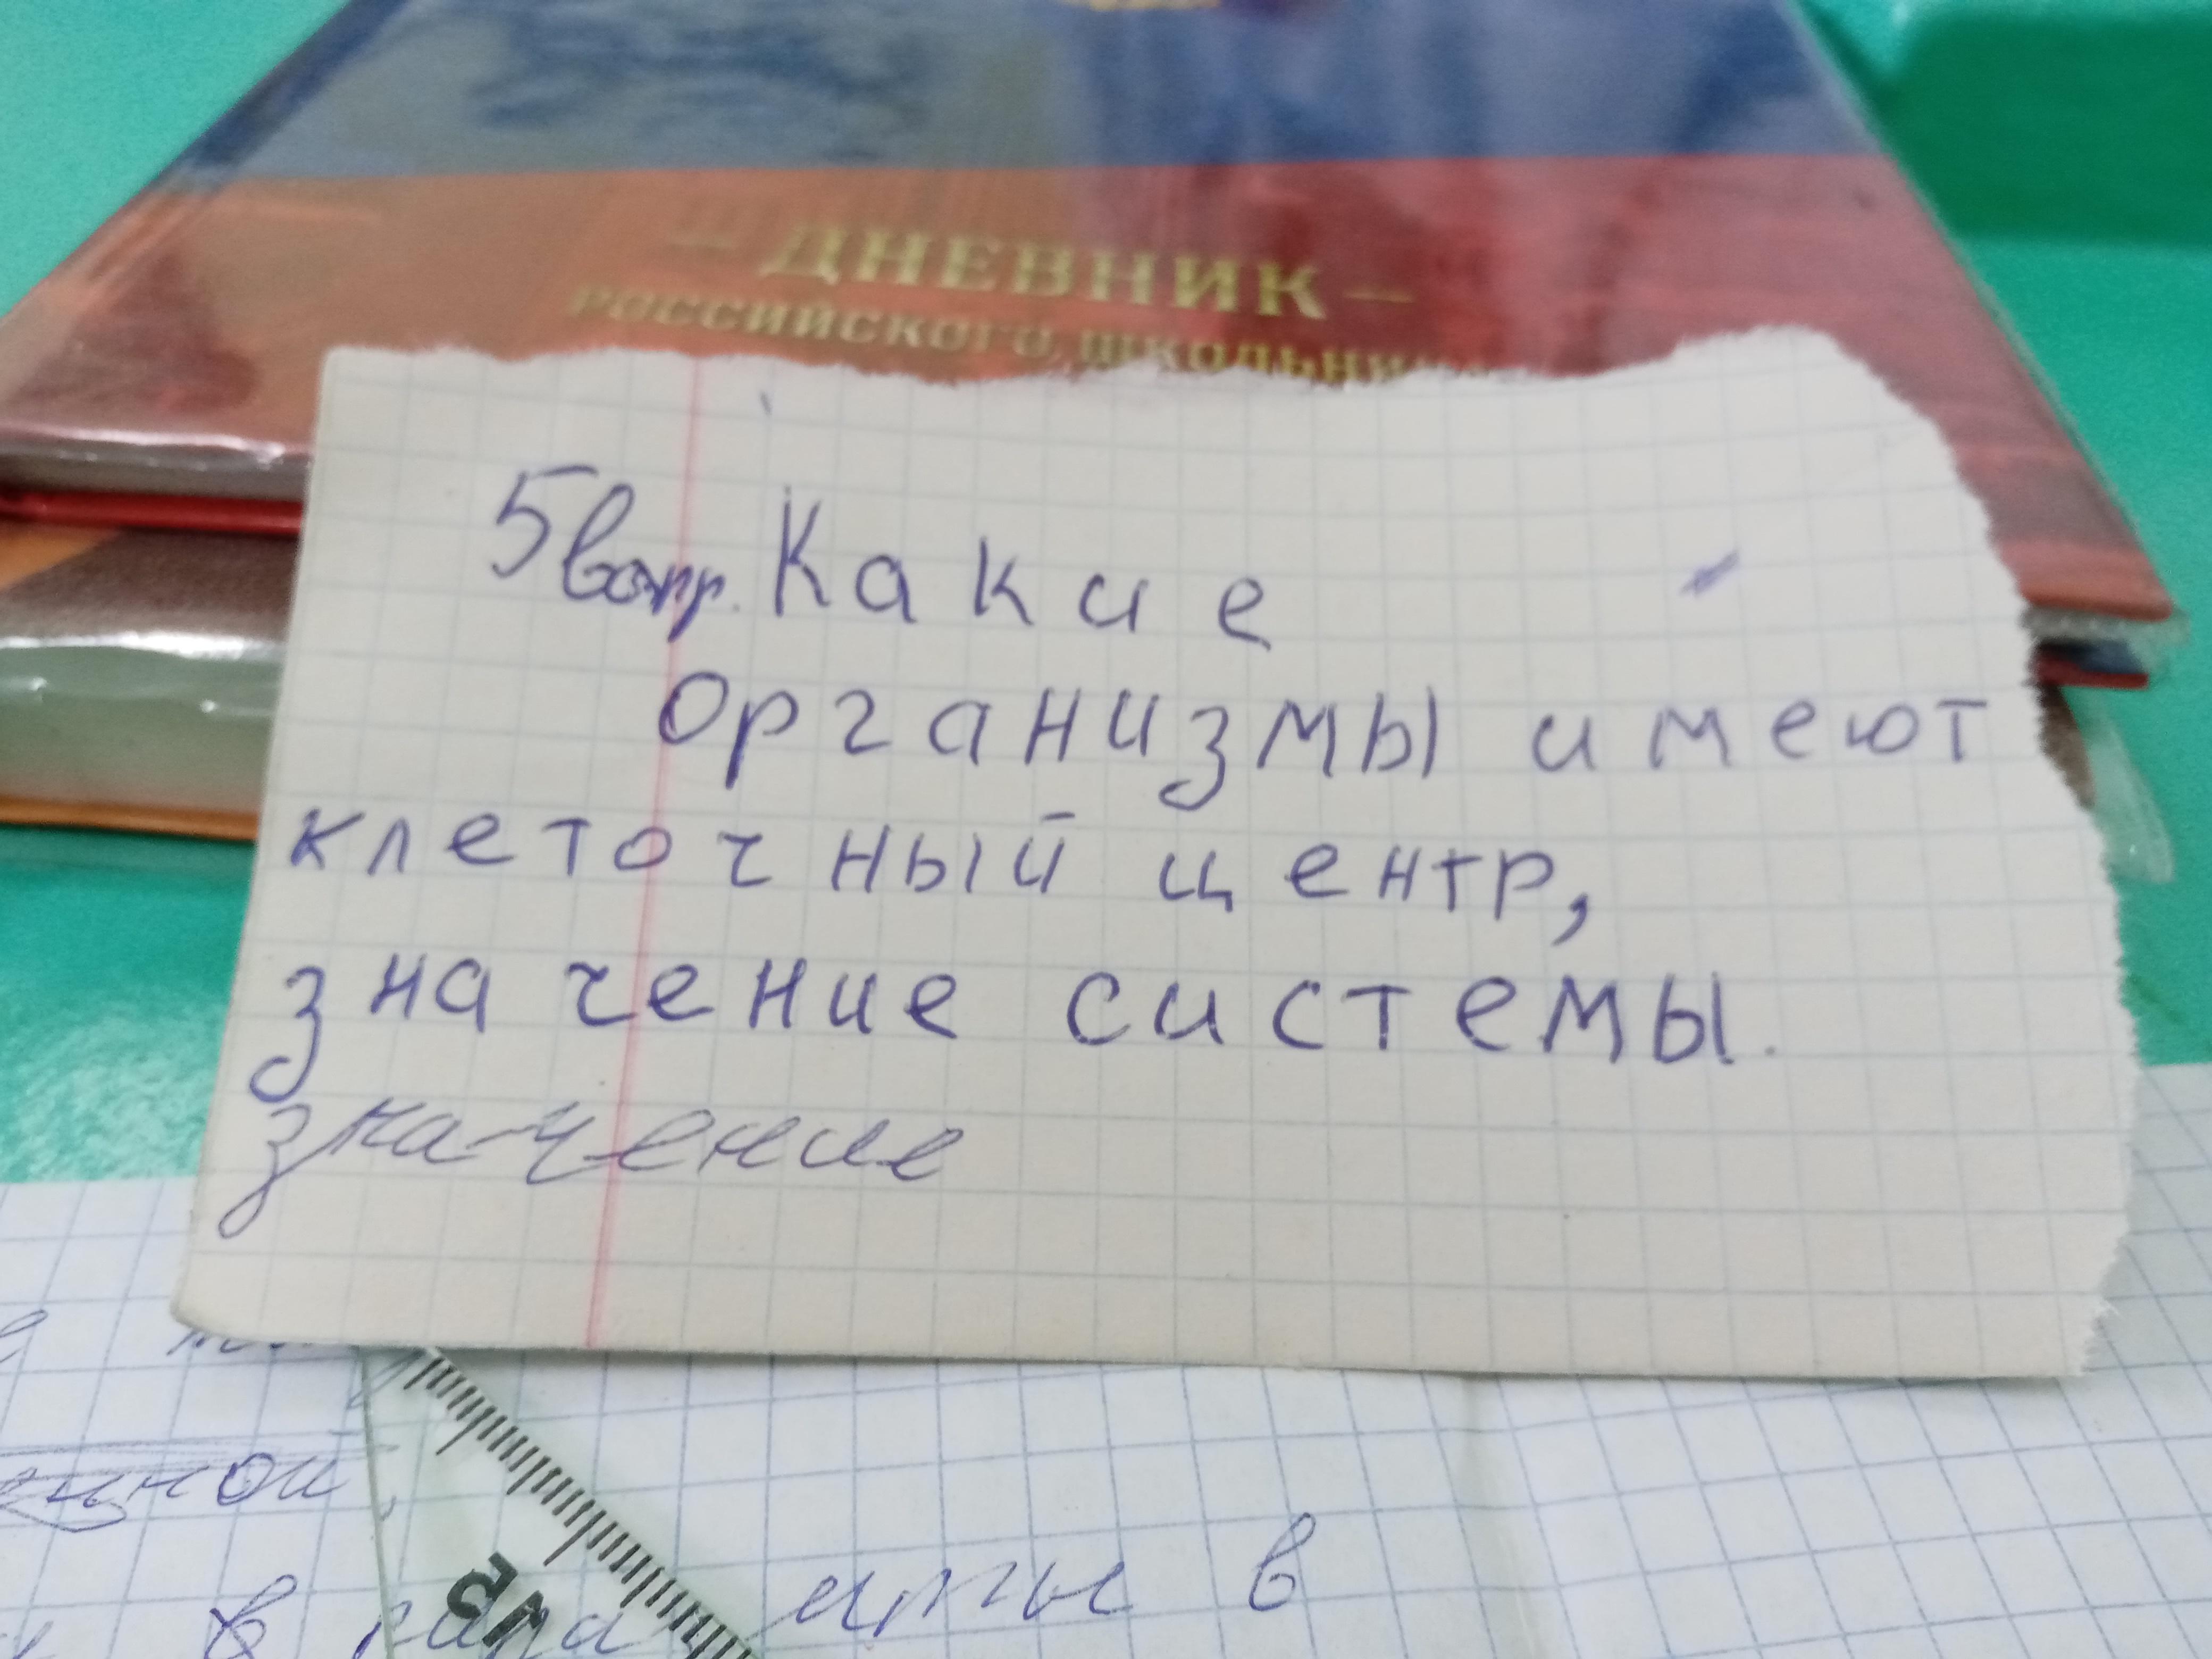 — ДНЕВНИК —
РОССИЙСКОГО ШКОЛЬНИКА
5 вопр. Какие
организмы имеют
клеточный центр,
значение системы.
значение
в
15